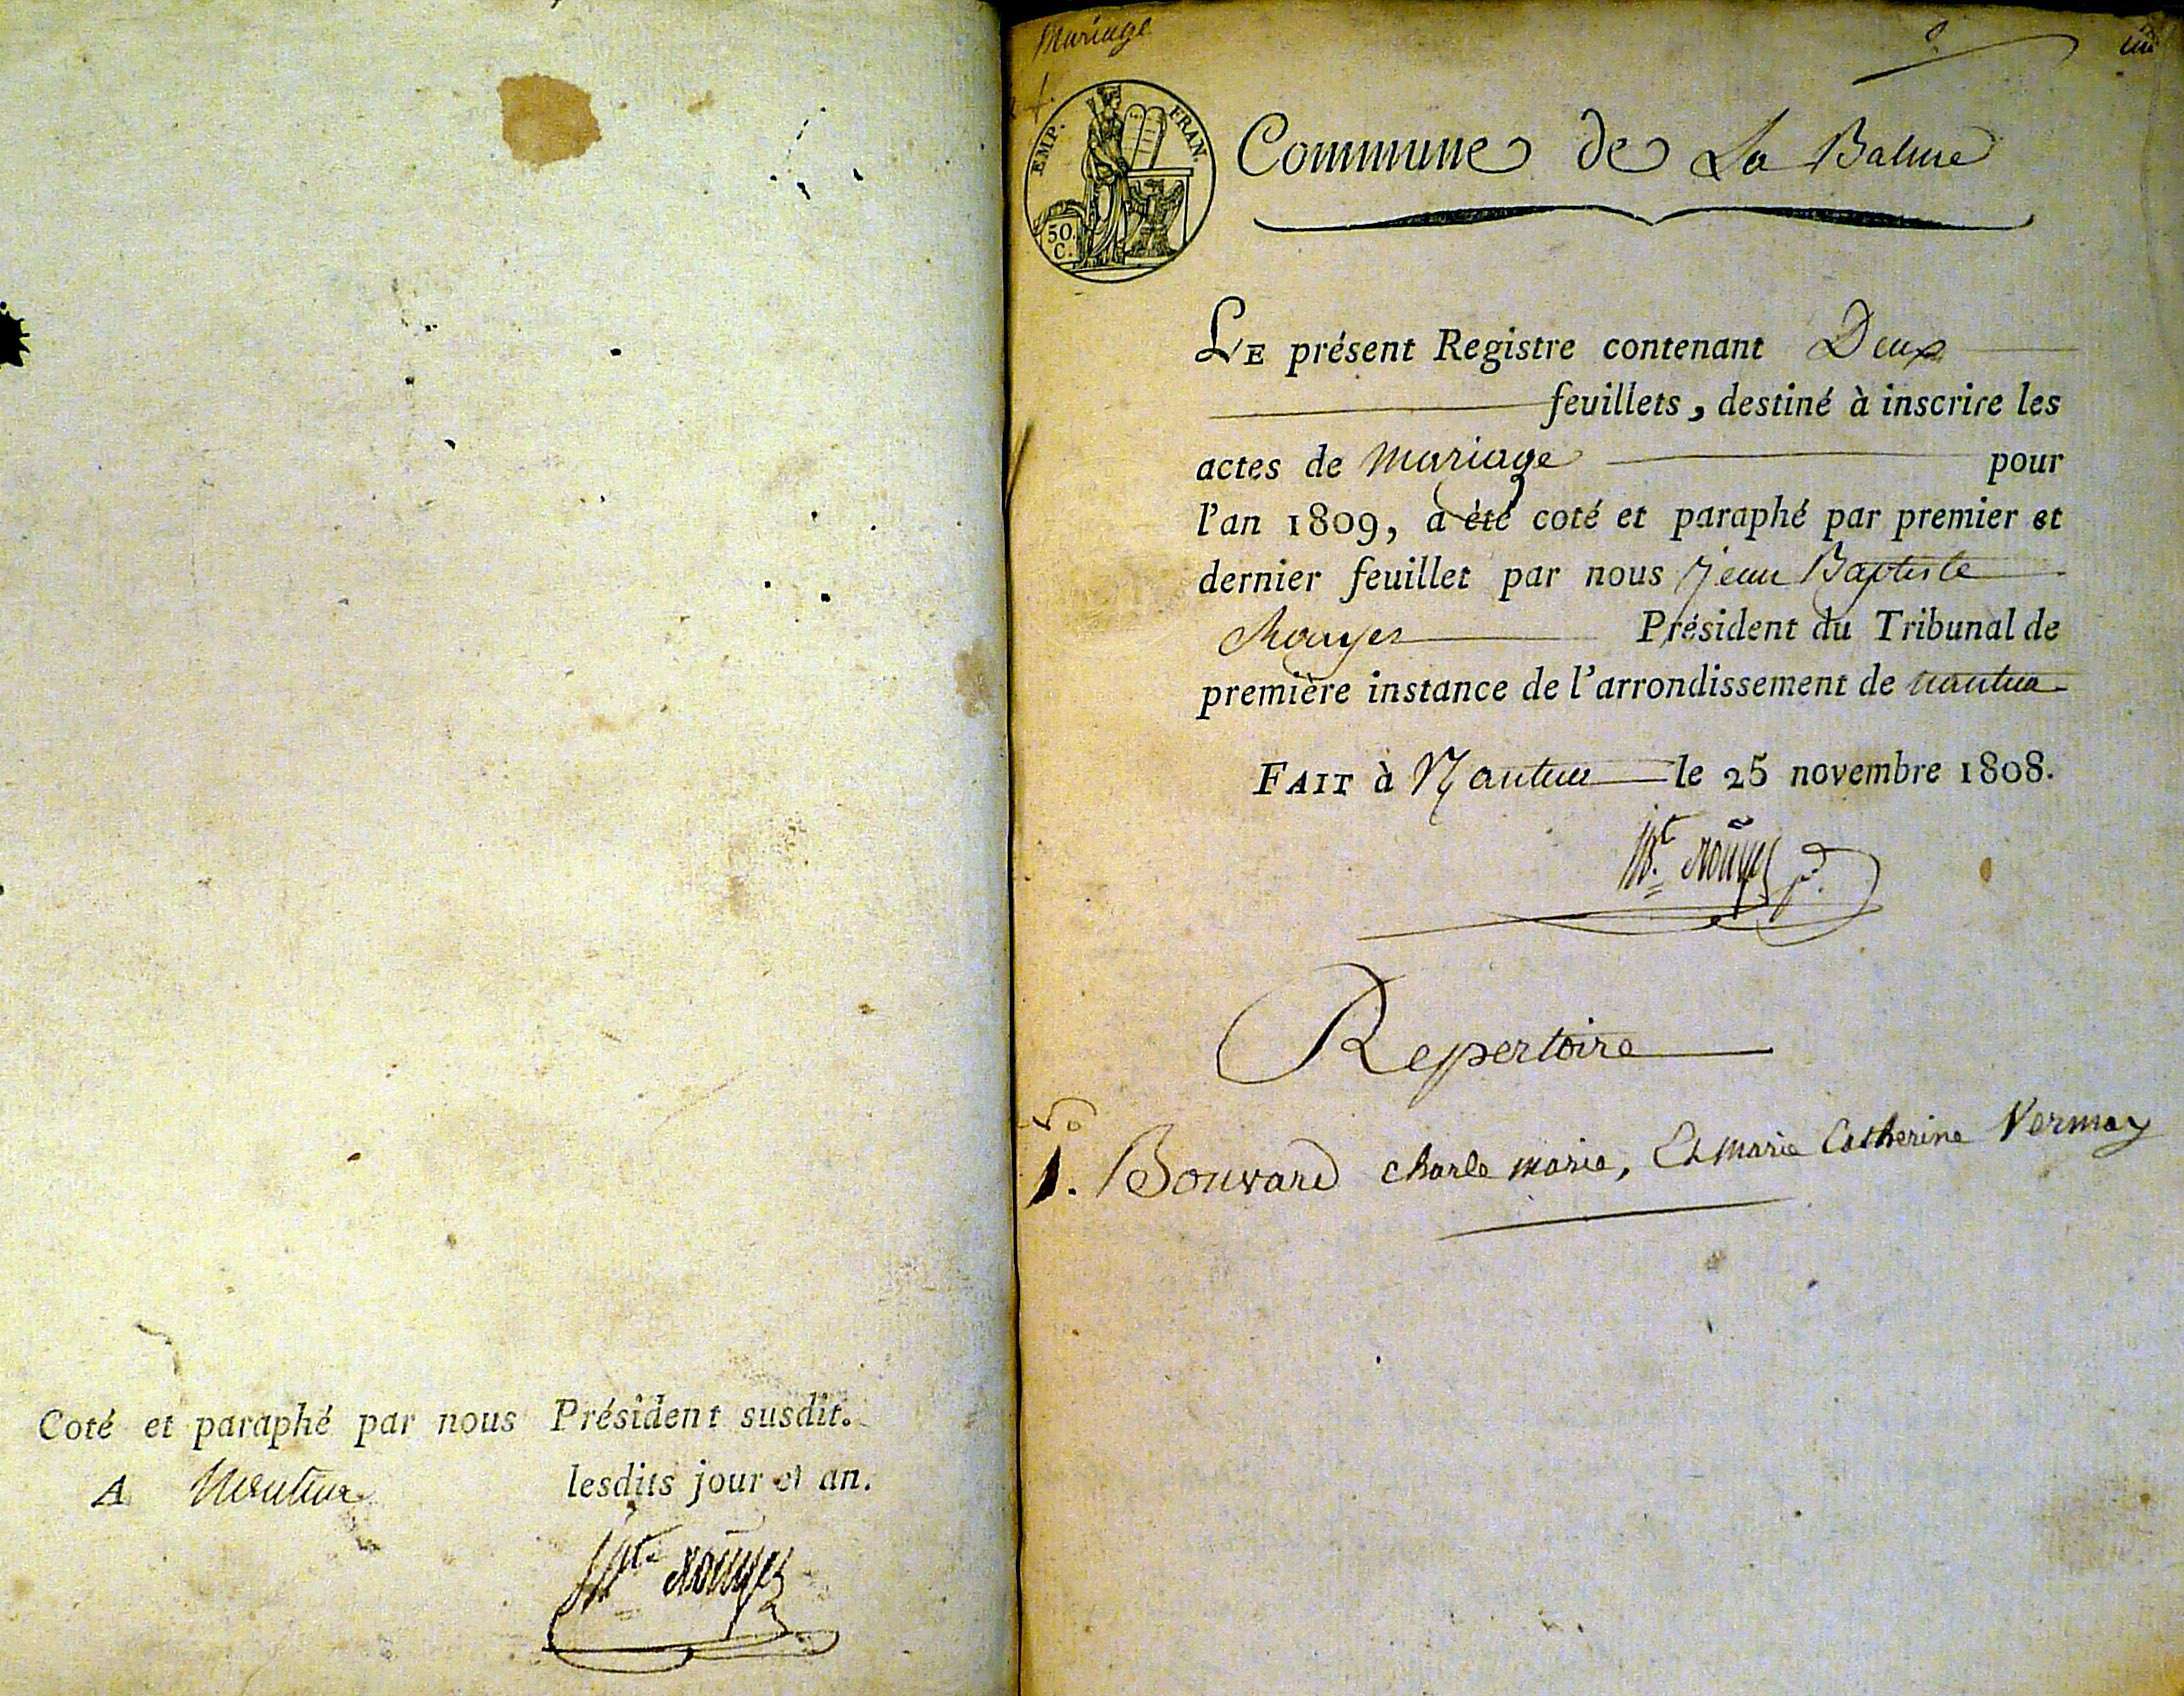 Coté et paraphé par nous Président susdit.
A Nantua lesdits jour et an.
Mariage
EMP. FRAN.
50.
C.
Commune de La Balme
LE présent Registre contenant Deux
feuillets, destiné à inscrire les
actes de Mariage pour
l'an 1809, a été coté et paraphé par premier et
dernier feuillet par nous Jean Baptiste
Rouyer Président du Tribunal de
première instance de l'arrondissement de nantua
FAIT à Nantua le 25 novembre 1808.
Repertoire
1. Bouvard charle marie, Et Marie Catherine Vermay